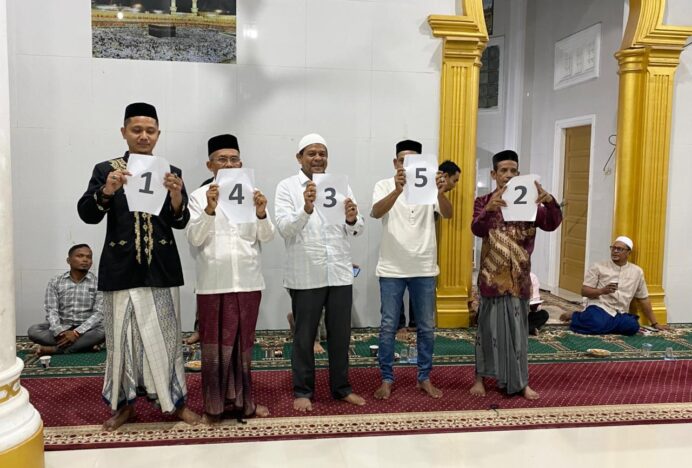 1
4
3
5
2